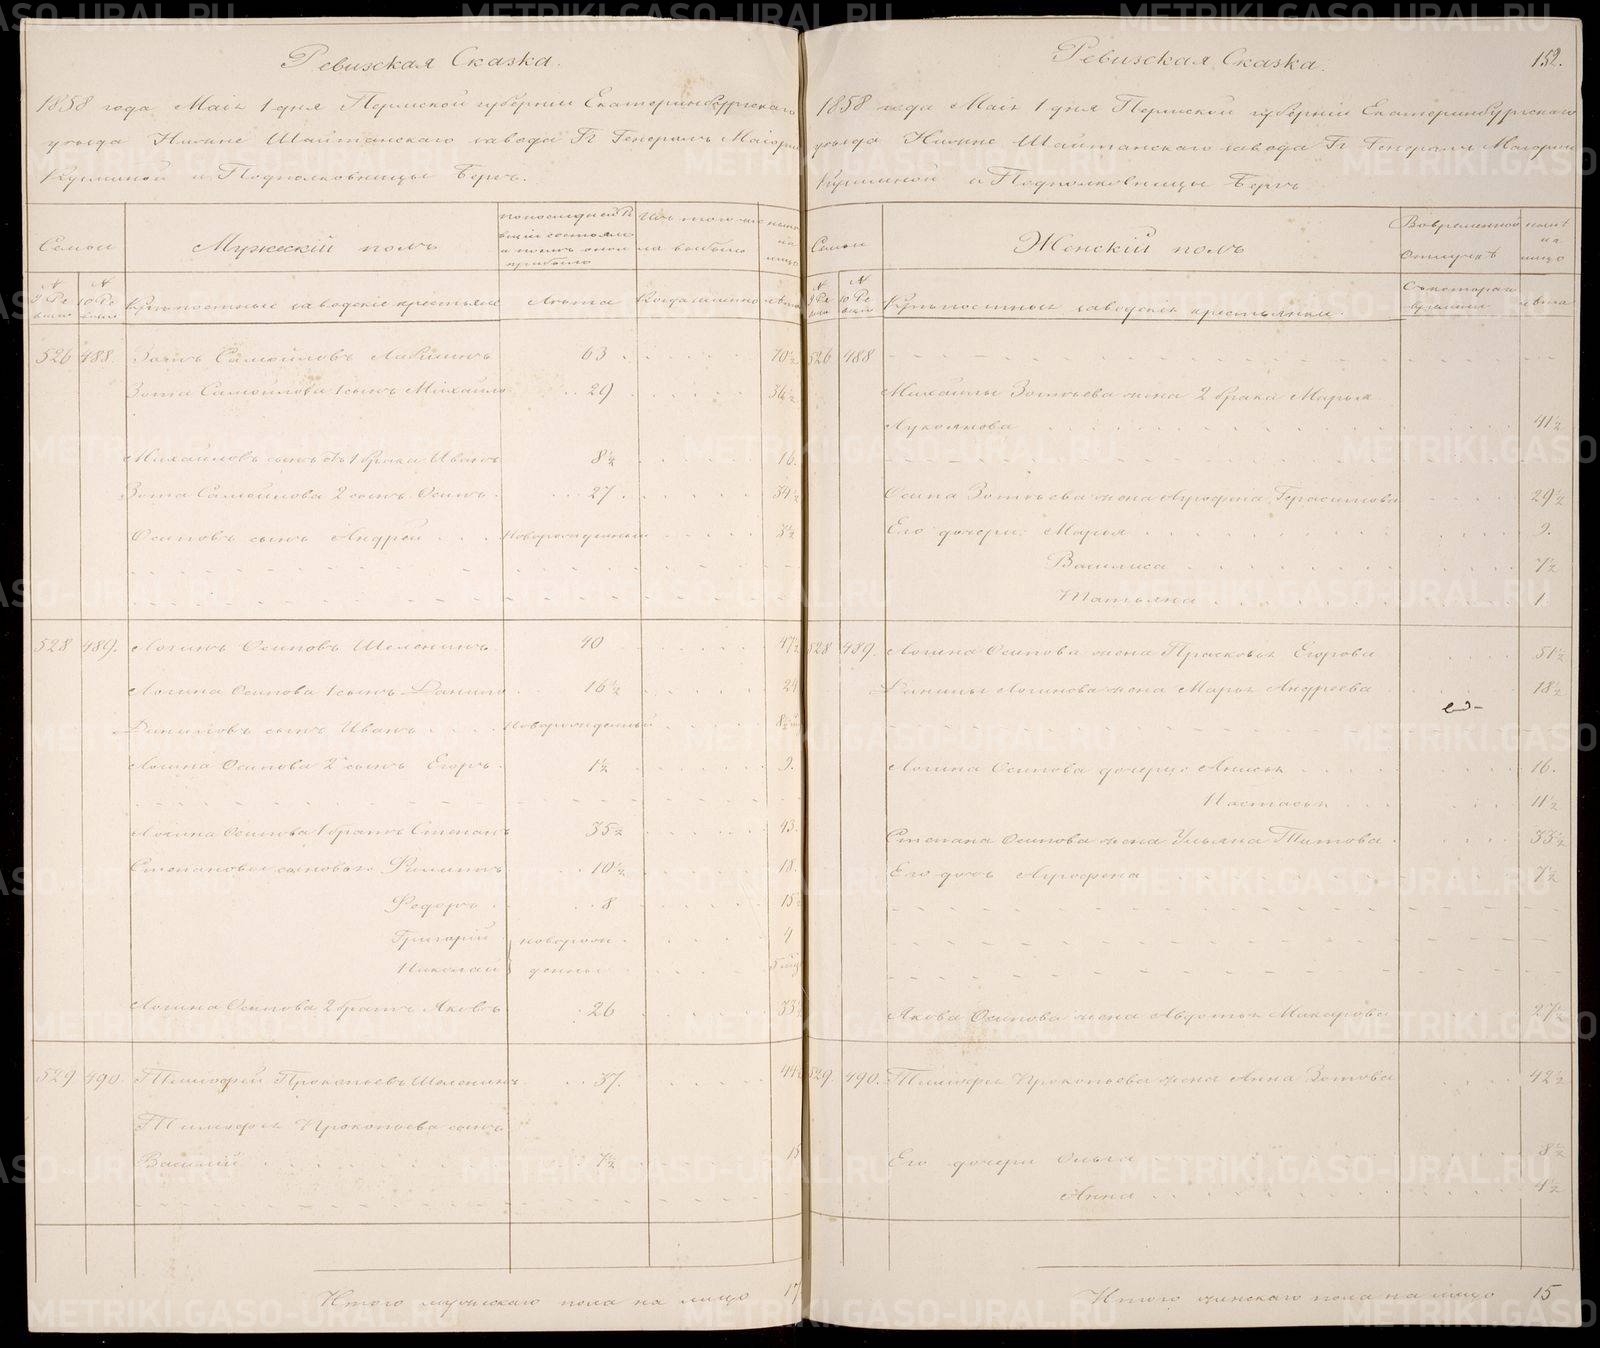 Ревизская Сказка.
1858 года Маія 1 дня Пермской губерніи Екатеринбургскаго
уѣзда Нижне Шайтанскаго завода Гг Генералъ Маіорши
Кузьминой и Подполковницы Бергъ.
Семьи
Мужескій полъ
по последней Ревизіи состояло и послѣ оной прибыло
Изъ того числа выбыло
ныне на лицо
№ 9 Ревизіи
№ 10 Ревизіи
Крѣпостные заводскіе крестьяне
Лѣта
Когда именно
лѣта
526 488. Зотъ Самойловъ 63 70½
Зота Самойлова 1 сынъ Михайло 29 36½
Михайловъ сынъ отъ 1 брака Иванъ 8½ 16.
Зота Самойлова 2 сынъ Осипъ 27. 34½
Осиповъ сынъ Андрей Новорожденный 3½
528 489. Логинъ Осиповъ Шеленинъ 40 47½
Логина Осипова 1 сынъ Данило 16½ 24
Даниловъ сынъ Иванъ Новорожденный
Логина Осипова 2 сынъ Егоръ 1½ 9.
Логина Осипова 1 братъ Степанъ 35½ 43.
Степановы сыновья Филиппъ 10½ 18.
Федоръ 8 15½
Григорій новорож- 4
Николай денные
Логина Осипова 2 братъ Яковъ 26 33½
529 490. Тимофей Прокопьевъ Шеленинъ 37. 44½
Тимофея Прокопьева сынъ
Василій 7½ 15
Итого мужескаго пола на лицо 17
Ревизская Сказка.
152.
1858 года Маія 1 дня Пермской губерніи Екатеринбургскаго
уѣзда Нижне Шайтанскаго завода Гг Генералъ Маіорши
Кузьминой и Подполковницы Бергъ
Семьи
Женскій полъ
Во временной отлучкѣ
ныне на лицо
№ 9 Ревизіи
№ 10 Ревизіи
Крѣпостныя заводскія крестьянки.
Съ котораго времени
лѣта
526 488
Михайлы Зотьева жена 2 брака Марья
Лукоянова 41½
Осипа Зотьева жена Агрофена Герасимова 29½
Его дочери: Марья 9.
Василиса 7½
Татьяна 1
528 489. Логина Осипова жена Прасковья Егорова 51½
Данилы Логинова жена Марья Андреева 18½
Логина Осипова дочери: Анисья 16.
Настасья 11½
Степана Осипова жена Ульяна Титова 33½
Его дочь Агрофена 7½
Якова Осипова жена Авдотья Макарова 27½
529. 490. Тимофея Прокопьева жена Анна Зотова 42½
Его дочери Ольга 8½
Анна 4½
Итого женскаго пола на лицо 15
METRIKI.GASO-URAL.RU